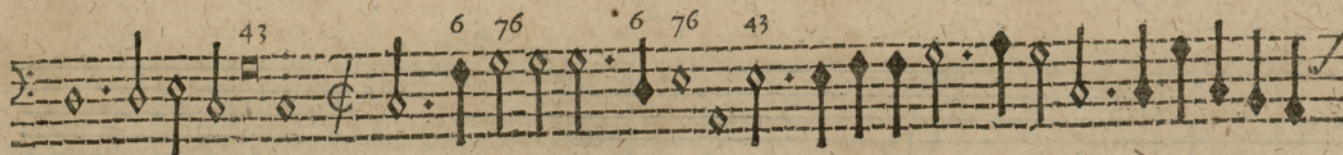 43 6 76 6 76 43